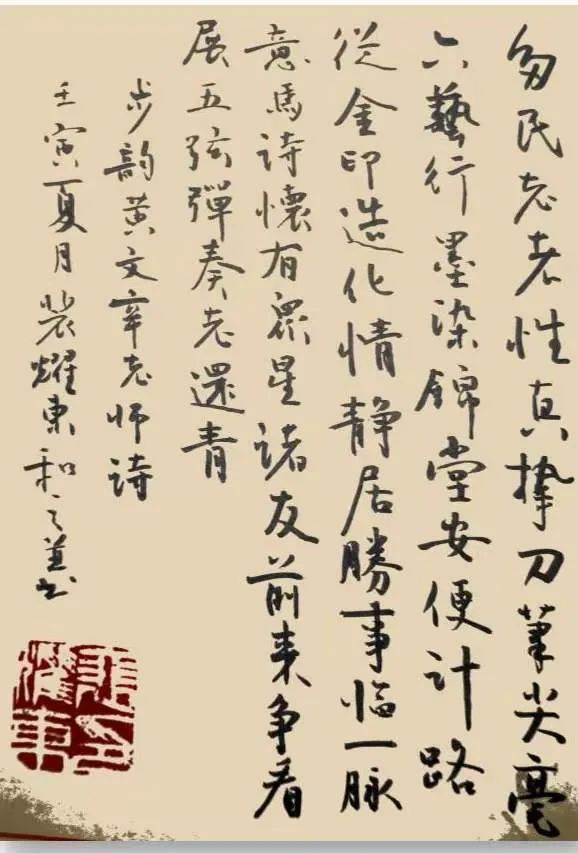 民老者性真挚刀筆尖毫
六藝行墨染錦堂安便計路
從金印造化情静居勝事臨一脉
意馬詩懷有眾星諸友前来争看
展五弦彈奏老還青
步韵黄文辛老师詩
壬寅夏月裴耀東和之並书